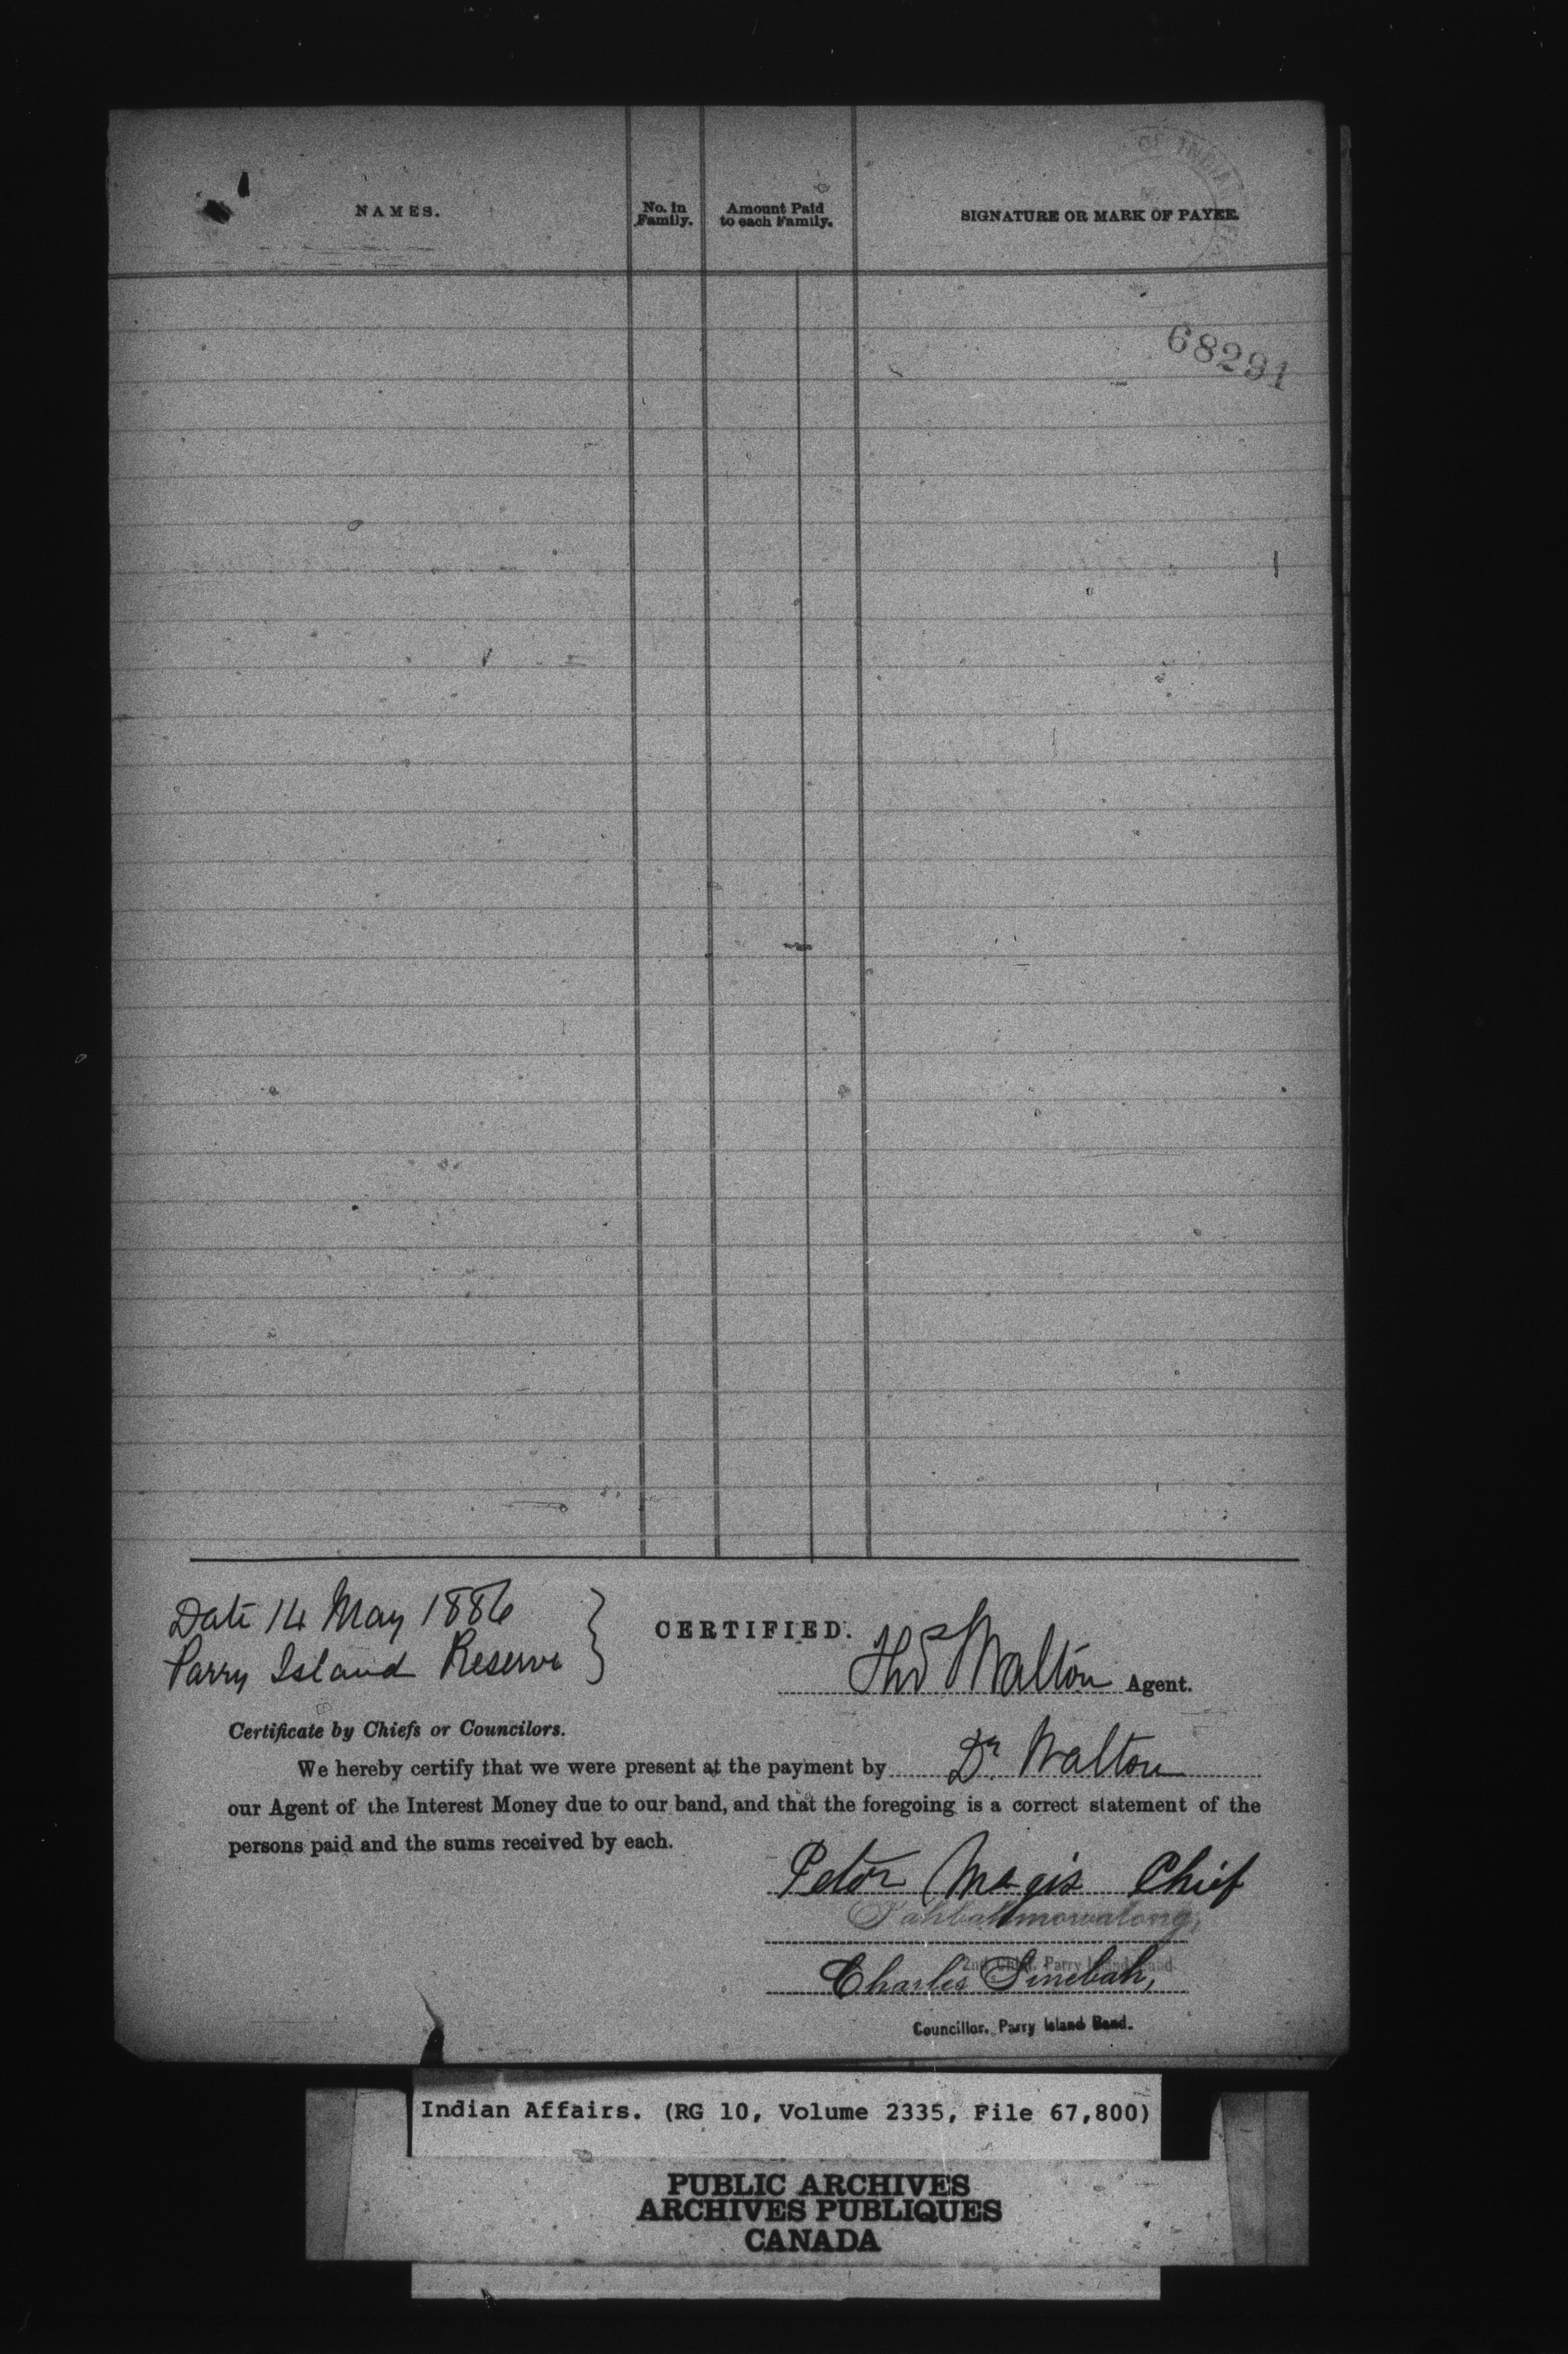 OF INDIA
NAMES.
No. in
Family.
Amount Paid
to each Family.
SIGNATURE OR MARK OF PAYEE.
68291
Date 14 May 1886
Parry Island Reserve
CERTIFIED.
Thos Walton Agent.
Certificate by Chiefs or Councilors.
We hereby certify that we were present at the payment by Dr. Walton
our Agent of the Interest Money due to our band, and that the foregoing is a correct statement of the
persons paid and the sums received by each.
Peter Megis Chief
Pahbahmowatong,
2nd Chief. Parry Island Band
Charles Sinebah,
Councillor. Parry Island Band.
Indian Affairs. (RG 10, Volume 2335, File 67,800)
PUBLIC ARCHIVES
ARCHIVES PUBLIQUES
CANADA